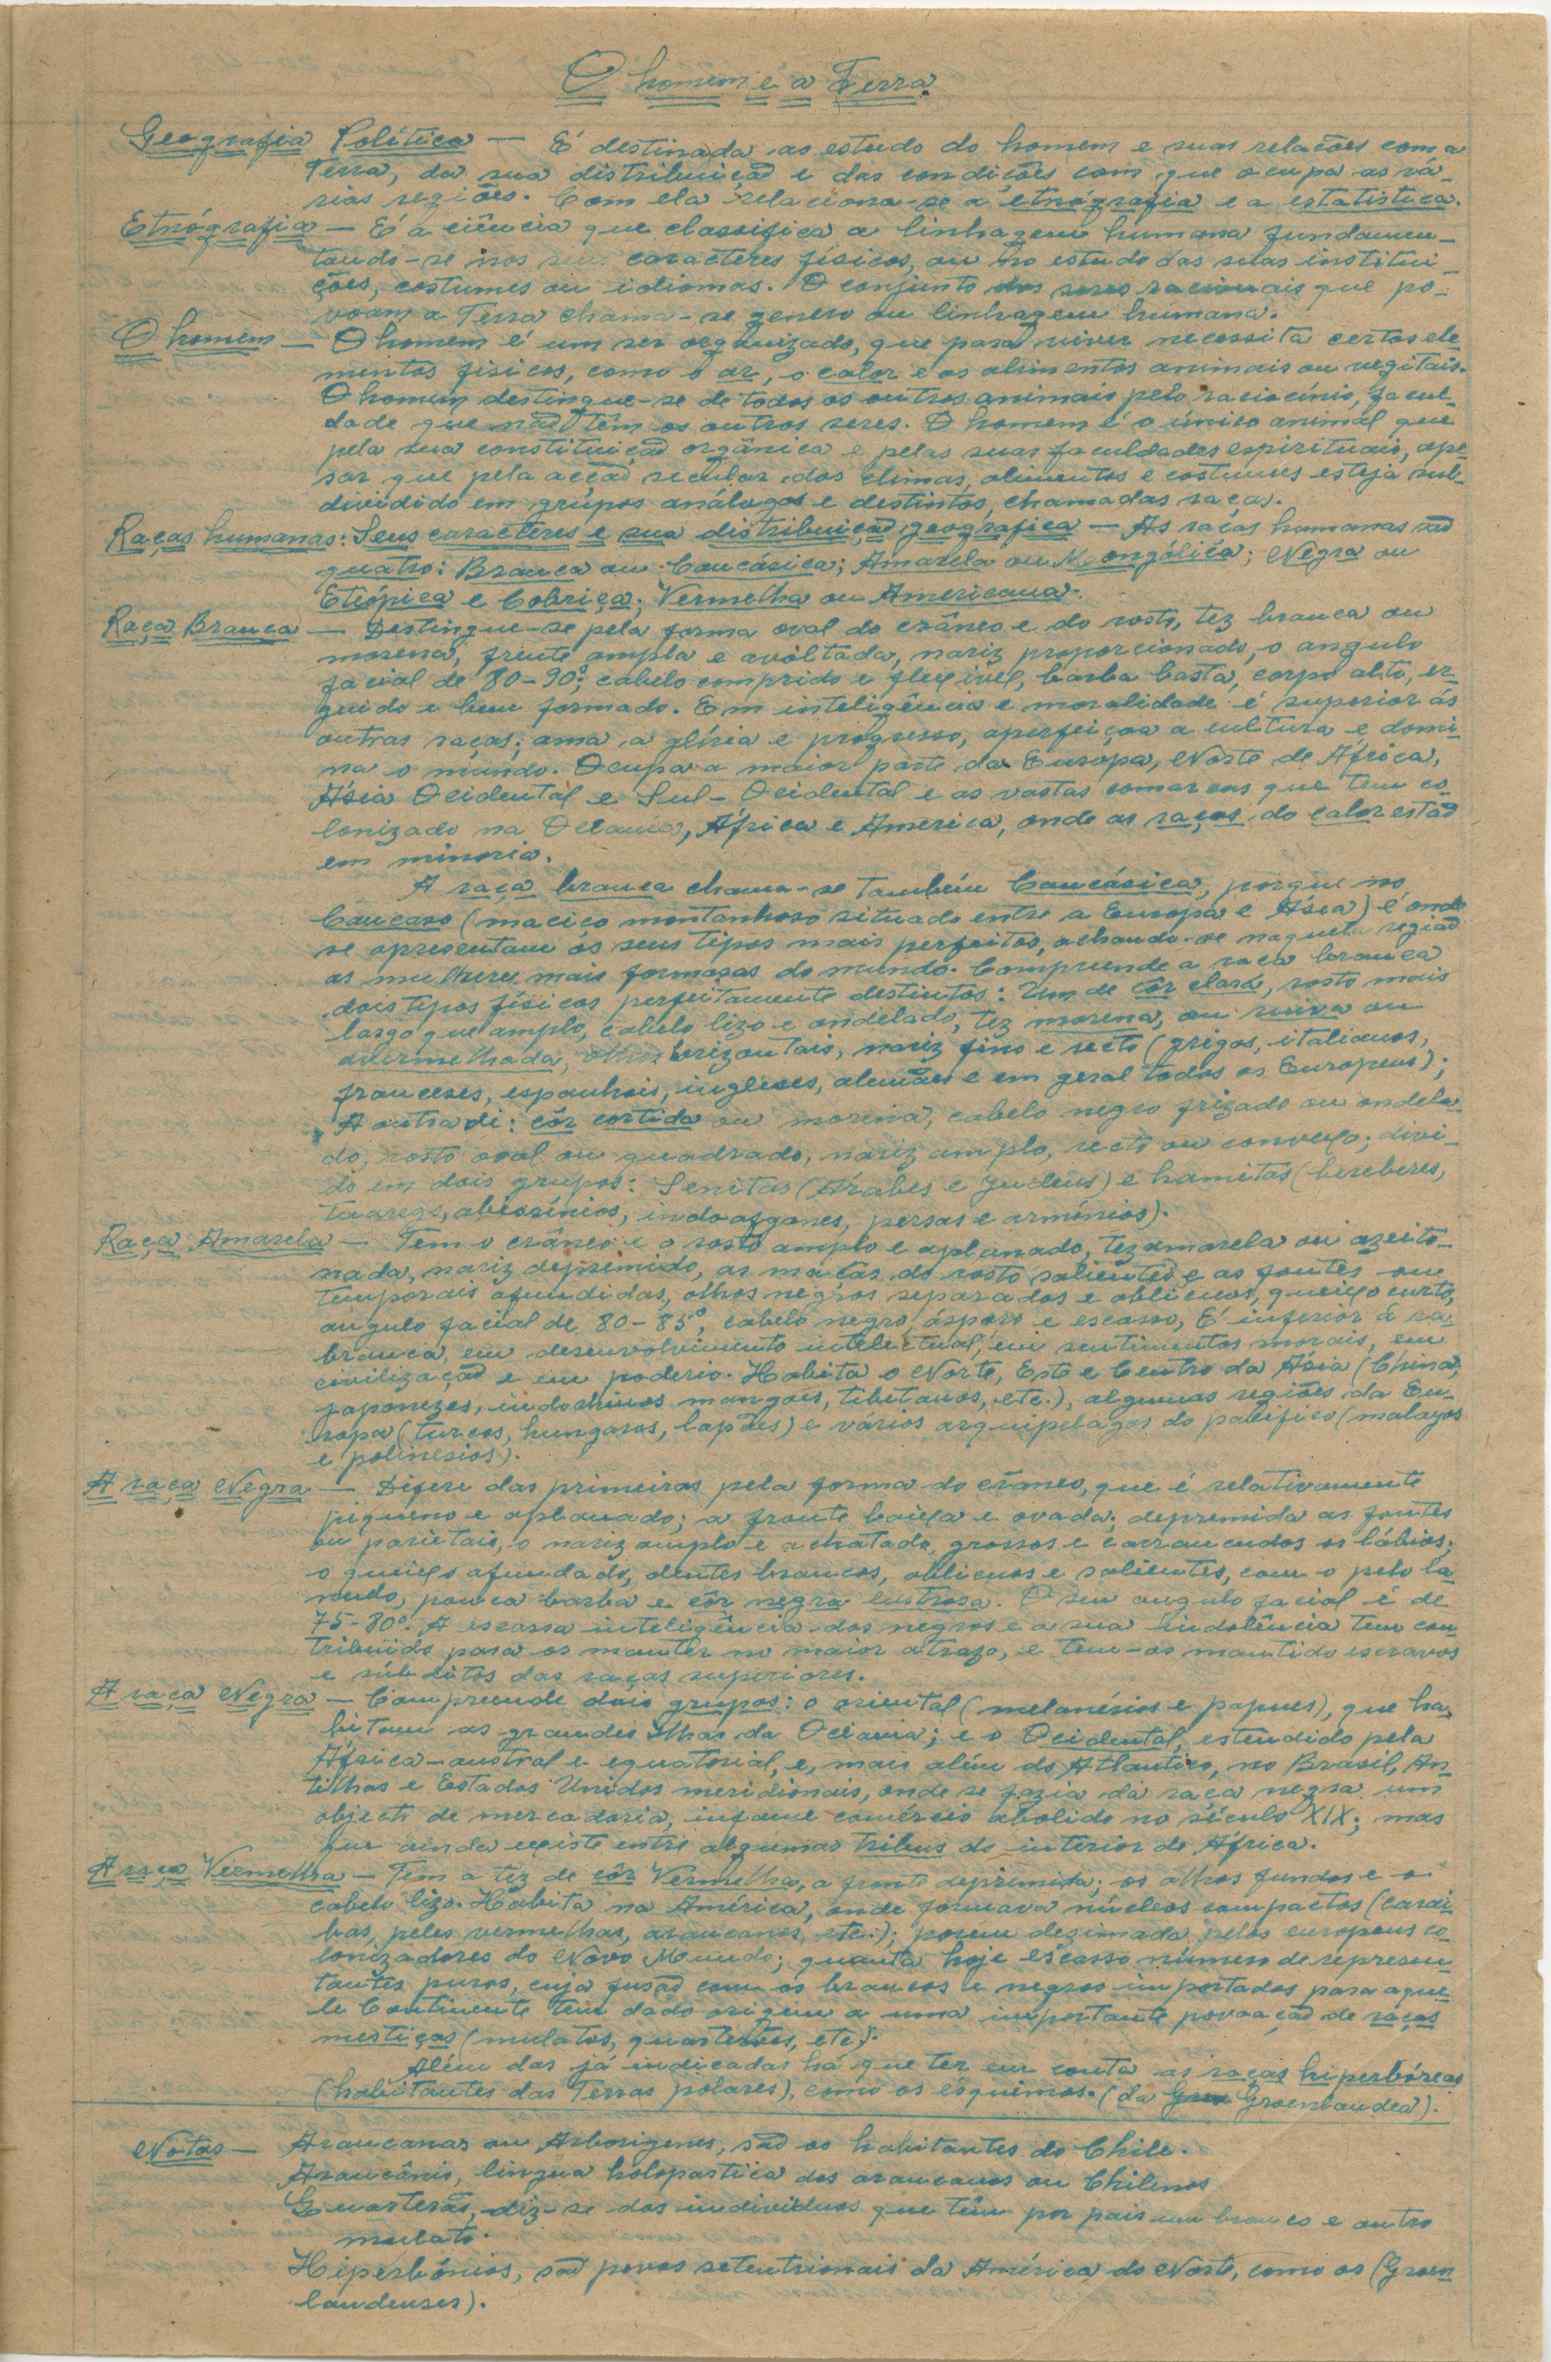 O homem e a Terra.
Geografia Política — É destinada ao estudo do homem e suas relações com a
Terra, da sua distribuição e das condições com que ocupa as vá-
rias regiões. Com ela relaciona-se a etnógrafia e a estatistica.
Etnógrafia — É a ciência que classifica a linhagem humana fundamen-
tando-se nos seus caracteres físicos, ou no estudo das suas institui-
ções, costumes ou idiomas. O conjunto dos seres racionais que po-
voam a Terra chama-se genero ou linhagem humana.
O homem — O homem é um ser organizado, que para viver necessita certos ele-
mintos fisicos, como o ar, o calor e os alimentos animais ou vegitais.
O homem destingue-se de todos os outros animais pelo raciocínio, facul-
dade que não têm os outros seres. O homem é o único animal que
pela sua constituição orgânica e pelas suas faculdades espirituais, ape-
sar que pela acção secular dos climas, alimentos e costumes esteja sub-
dividido em grupos análogos e destintos, chamadas raças.
Raças humanas: Seus caracteres e sua distribuição geografica — As raças humanas são
quatro: Branca ou Caucásica; Amarela ou Mongólica; Negra ou
Etiópica e Cobriça; Vermelha ou Americana.
Raça Branca — Destingue-se pela forma oval do crâneo e do rosto, tez branca ou
morena, frente ampla e avoltada, nariz proporcionado, o angulo
facial de 80-90°; cabelo comprido e flexivel, barba basta, corpo alto, er-
guido e bem formado. Em inteligência e moralidade é superior ás
outras raças; ama a glíria e progresso, aperfeiçoa a cultura e domi-
na o mundo. Ocupa a maior parte da Europa, Norte de África,
Ásia Ocidental e Sul-Ocidental e as vastas comarcas que tem co-
lonizado na Oceania, África e America, onde as raças do calor estão
em minoria.
A raça branca chama-se também Caucásica, porque no
Caucaso (macico montanhoso situado entre a Europa e Ásia) é onde
se apresentam os seus tipos mais perfeitos, achando-se naquela região
as mulheres mais formosas do mundo. Compreende a raça branca
dois tipos físicos perfeitamente destintos: Um de côr clara, rosto mais
largo que amplo, cabelo lizo e ondelado, tez morena, ou ruiva ou
avermelhada, olhos horizontais, nariz fino e recto (grigos, italianos,
franceses, espanhois, ingleses, alemães e em geral todos os Europeus);
A outra di: côr cortida ou morena, cabelo negro frizado ou ondela-
do, rosto oval ou quadrado, nariz amplo, recto ou convexo; divi-
do em dois grupos: Senitas (Árabes e Judeus) e hamitas (bereberes,
taaregs, abissínios, indoafganes, persas e armónios).
Raça Amarela — Tem o crâneo e o rosto amplo e aplanado, tez amarela ou azeito-
nada, nariz depremido, as maçãs do rosto salientes e as fontes ou
temporais afundidas, olhos negros separados e oblicuos, queixo curto,
angulo facial de 80-85°, cabelo negro, áspero e escasso, É inferior á ra-
branca, em desenvolvimento intelectual, em sentimentos morais, em
civilização e em poderio. Habita o Norte, Este e Centro da Ásia (China,
japonezes, indochinos mangois, tibitanos, etc.), algumas regiões da Eu-
ropa (turcos, hungaros, lapões) e vários arquipelagos do pacifico (malayos
e polinesios).
A raça Negra — Difere das primeiras pela forma do crâneo, que é relativamente
piqueno e aplanado; a fronte baixa e ovada; depremida as fontes
ou parietais, o nariz amplo e achatado, grossos e carrancudos os lábios;
o queixo afundado, dentes brancos, oblicuos e salientes, com o pelo la-
nudo, pouca barba e côr negra lustrosa. O seu angulo facial é de
75-80°. A escassa inteligência dos negros e a sua indolência tem con-
tribuido para os manter no maior atrazo, e tem-os mantido escravos
e súbditos das raças superiores.
A raça Negra — Compreende dois grupos: o oriental (melanésios e papues), que ha-
bitam as grandes Ilhas da Oceania; e o Ocidental, estendido pela
África-austral e equatorial, e, mais além do Atlantico, no Brasil, An-
tilhas e Estados Unidos meridionais, onde se fazia da raça negra um
objecto de mercadoria, infame comércio abolido no século XIX; mas
que ainda existe entre algumas tribus do interior de Africa.
A raça Vermelha — Tem a tez de côr Vermelha, a fronte deprimida; os olhos fundos e o
cabelo lizo. Habita na América, onde formava núcleos compactos (carai-
bas, peles vermelhas, araucanos, etc.); porem dezimada pelos europeus co-
lonizadores do Novo Mundo; quanta hoje escasso número de represen-
tantes puros, cuja fusão com os brancos e negros importados para aque-
le Continente tem dado origem a uma importante povoação de raças
mestiças (mulatos, quarterões, etc).
Além das já indicadas há que ter em conta as raças hiperbóreas
(habitantes das Terras polares), como os esquimos. (da Groenlandea).
Notas — Araucanas ou Arborigenes, são os habitantes do Chile.
Araucânio, lingua holopastica dos araucanos ou Chilenos
Quarterão, diz-se dos individuos que têm por pais um branco e outro
mulato.
Hiperbónios, são povos setentrionais da América do Norte, como os (Groen-
landenses).